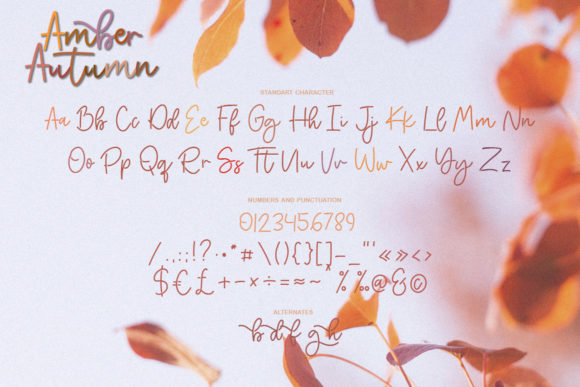 Amber
Autumn
STANDART CHARACTER
Aa Bb Cc Dd Ee Ff Gg Hh Ii Jj Kk Ll Mm Nn
Oo Pp Qq Rr Ss Tt Uu Vv Ww Xx Yy Zz
NUMBERS AND PUNCTUATION
0123456789
/.,:;!?·•*#\(){}[]-_"'«»‹›
$€£+-×÷=≈~^%‰@&©
ALTERNATES
b d f g h